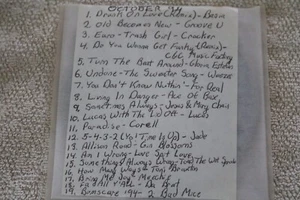 OCTOBER '94
1. Drunk On Love (Remix) - Basia
2. Old Becomes New - Groove U
3. Euro-Trash Girl - Cracker
4. Do You Wanna Get Funky (Remix) -
C&C Music Factory
5. Turn The Beat Around - Gloria Estefan
6. Undone - The Sweater Song - Weezer
7. You Don't Know Nothin' - For Real
8. Living In Danger - Ace Of Base
9. Sometimes Always - Jesus & Mary Chain
10. Lucas With The Lid Off - Lucas
11. Paradise -
12. 5-4-3-2 (Yo! Time Is Up) - Jade
13. Allison Road - Gin Blossoms
14. Am I Wrong - Love Spit Love
15. Something's Always Wrong - Toad The Wet Sprocket
16. How Many Ways - Toni Braxton
17. Bring Me Joy -
18. Fa All Y'All - Da Brat
19. Bomscare '94 - 2 Bad Mice